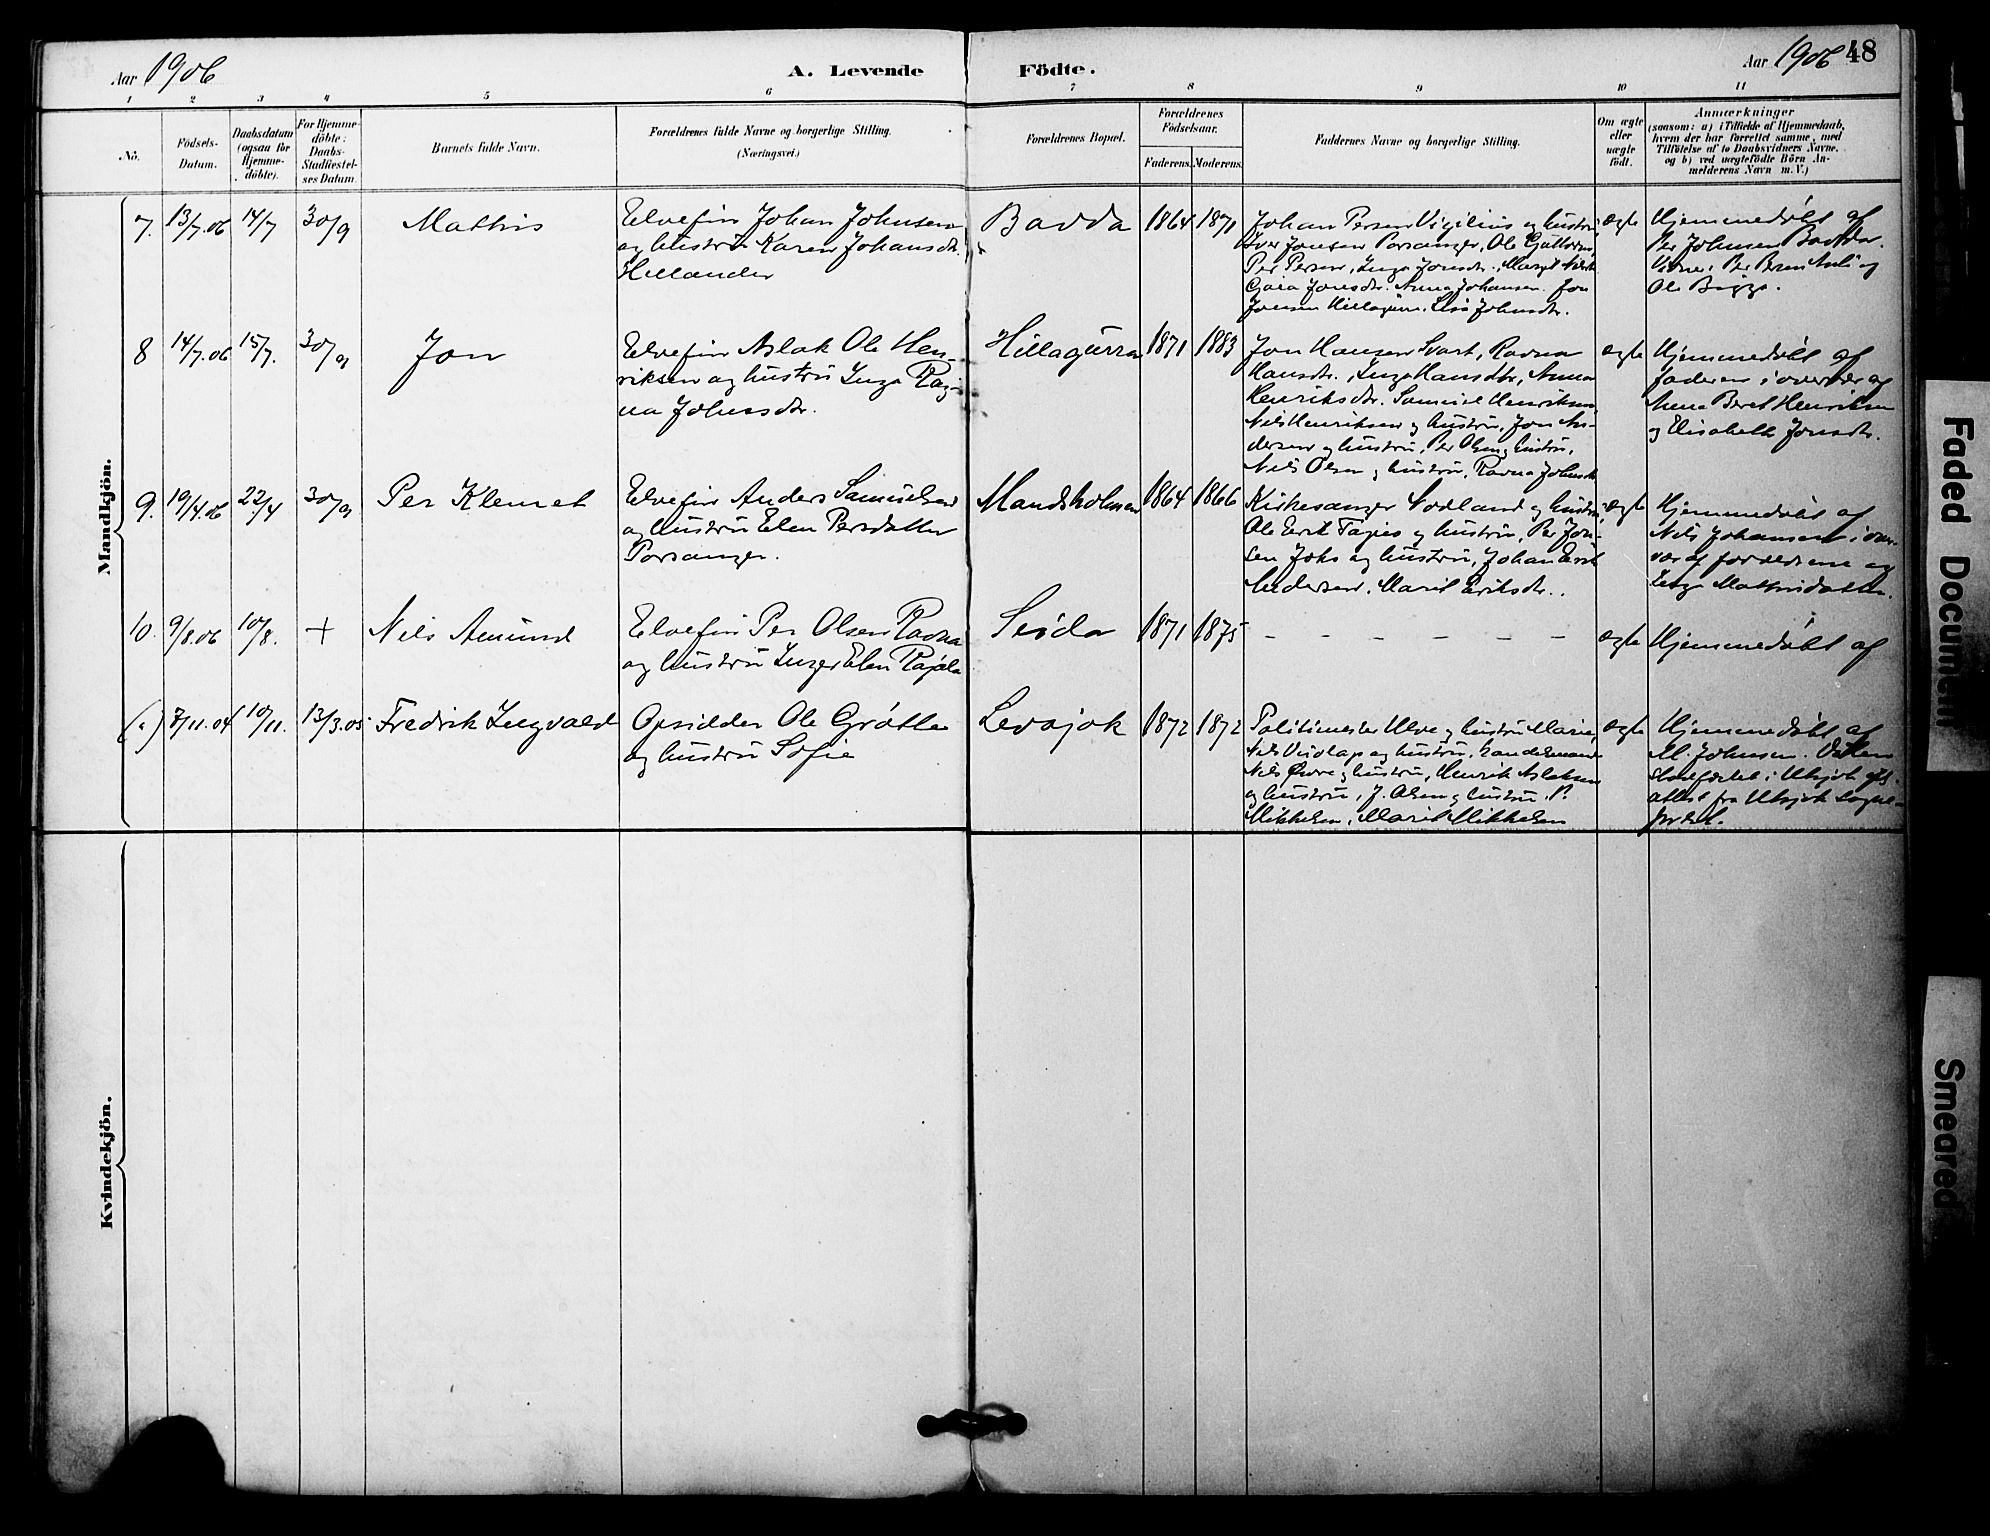 Aar 1906
A. Levende
Födte.
Aar 1906
48
1 2 3 4 5 6 7 8 9 10 11
No.
Födsels-
Datum.
Daabsdatum
(ogsaa for
Hjemme-
döbte).
For Hjemme-
döbte:
Daabs-
Stadfæstel-
ses Datum.
Barnets fulde Navn.
Forældrenes fulde Navne og borgerlige Stilling.
(Næringsvei.)
Forældrenes Bopæl.
Forældrenes
Födselsaar.
Faderens. Moderens.
Faddernes Navne og borgerlige Stilling.
Om ægte
eller
uægte
födt.
Anmærkninger
(saasom: a) i Tilfælde af Hjemmedaab,
hvem der har forrettet samme, med
Tilföielse af to Daabsvidners Navne,
og b) ved uægtefödte Börn An-
melderens Navn m. V.)
Mandkjön.
7. 13/7.06 14/7 30/9 Mathis
Elvefin Johan Johnsen
og hustru Karen Johansdtr.
Hellander
Bavda 1864 1870
Johan Persen Vigilius og hustru
Iver Jonsen Porsanger, Ole Guttorm
Per Persen, Inga Jonsdtr., Marget Nilsdtr
Gjaia Jonsdtr. Anna Johansen. Jon
Jonsen Hillagurra. Lisa Johnsdtr.
ægte
Hjemmedøbt af
Per Johnsen Bavda.
Vidner: Per Anti og
Ole Bigga.
8 14/7.06 15/7. 30/9 Jon
Elvefin Aslak Ole Hen-
riksen og hustru Inga Rag-
na Johnsdtr.
Hillagurra 1871 1883
Jon Hansen Svart, Ravna
Hansdtr., Inga Hansdtr, Anna
Henriksdtr. Samuel Henriksen,
Nils Henriksen og hustru, Jon An-
dersen og hustru, Per Olsen og hustru,
Nils Olsen og hustru, Ravna Johnsdtr
ægte
Hjemmedøbt af
faderen i overvær og
Anna Beret Henriksen
og Elisabeth Jonsdtr.
9. 19/4.06 22/4 30/9 Per Klemet
Elvefin Anders Samuelsen
og hustru Elen Persdatter
Porsanger.
Mandsholmen 1864 1866
Kirkesanger Nordland og hustru,
Ole Erik Tapies og hustru, Per Jon-
sen Joks og hustru, Johan Erik
Andersen, Marit Eriksdtr.
ægte
Hjemmedøbt af
Nils Johansen i over-
vær af forældrene og
Inga Mathisdatter.
10. 9/8.06 10/8. + Nils Amund
Elvefin Per Olsen Ravna
og hustru Inger Elen Rajala
Seida 1871 1875 - - - - - - -
ægte Hjemmedøbt af
8/11.04 10/11. 13/3.05 Fredrik Ingvald
Opsidder Ole Grøtte
og hustru Sofie
Levajok 1872 1872
Politimester Ulve og hustru Marie,
Nils Vuolap og hustru, handelsmand
Nils Ørve og hustru, Henrik Aslaksen
og hustru, J. Olsen og hustru. P.
Mikkelsen, Marit Mikkelsen
ægte
Hjemmedøbt af
M. Johnsen. Daaben
stadfæstet i Utsjok efter
attest fra Utsjok sogne-
prest.
Kvindekjön.
Faded Document
Smeared